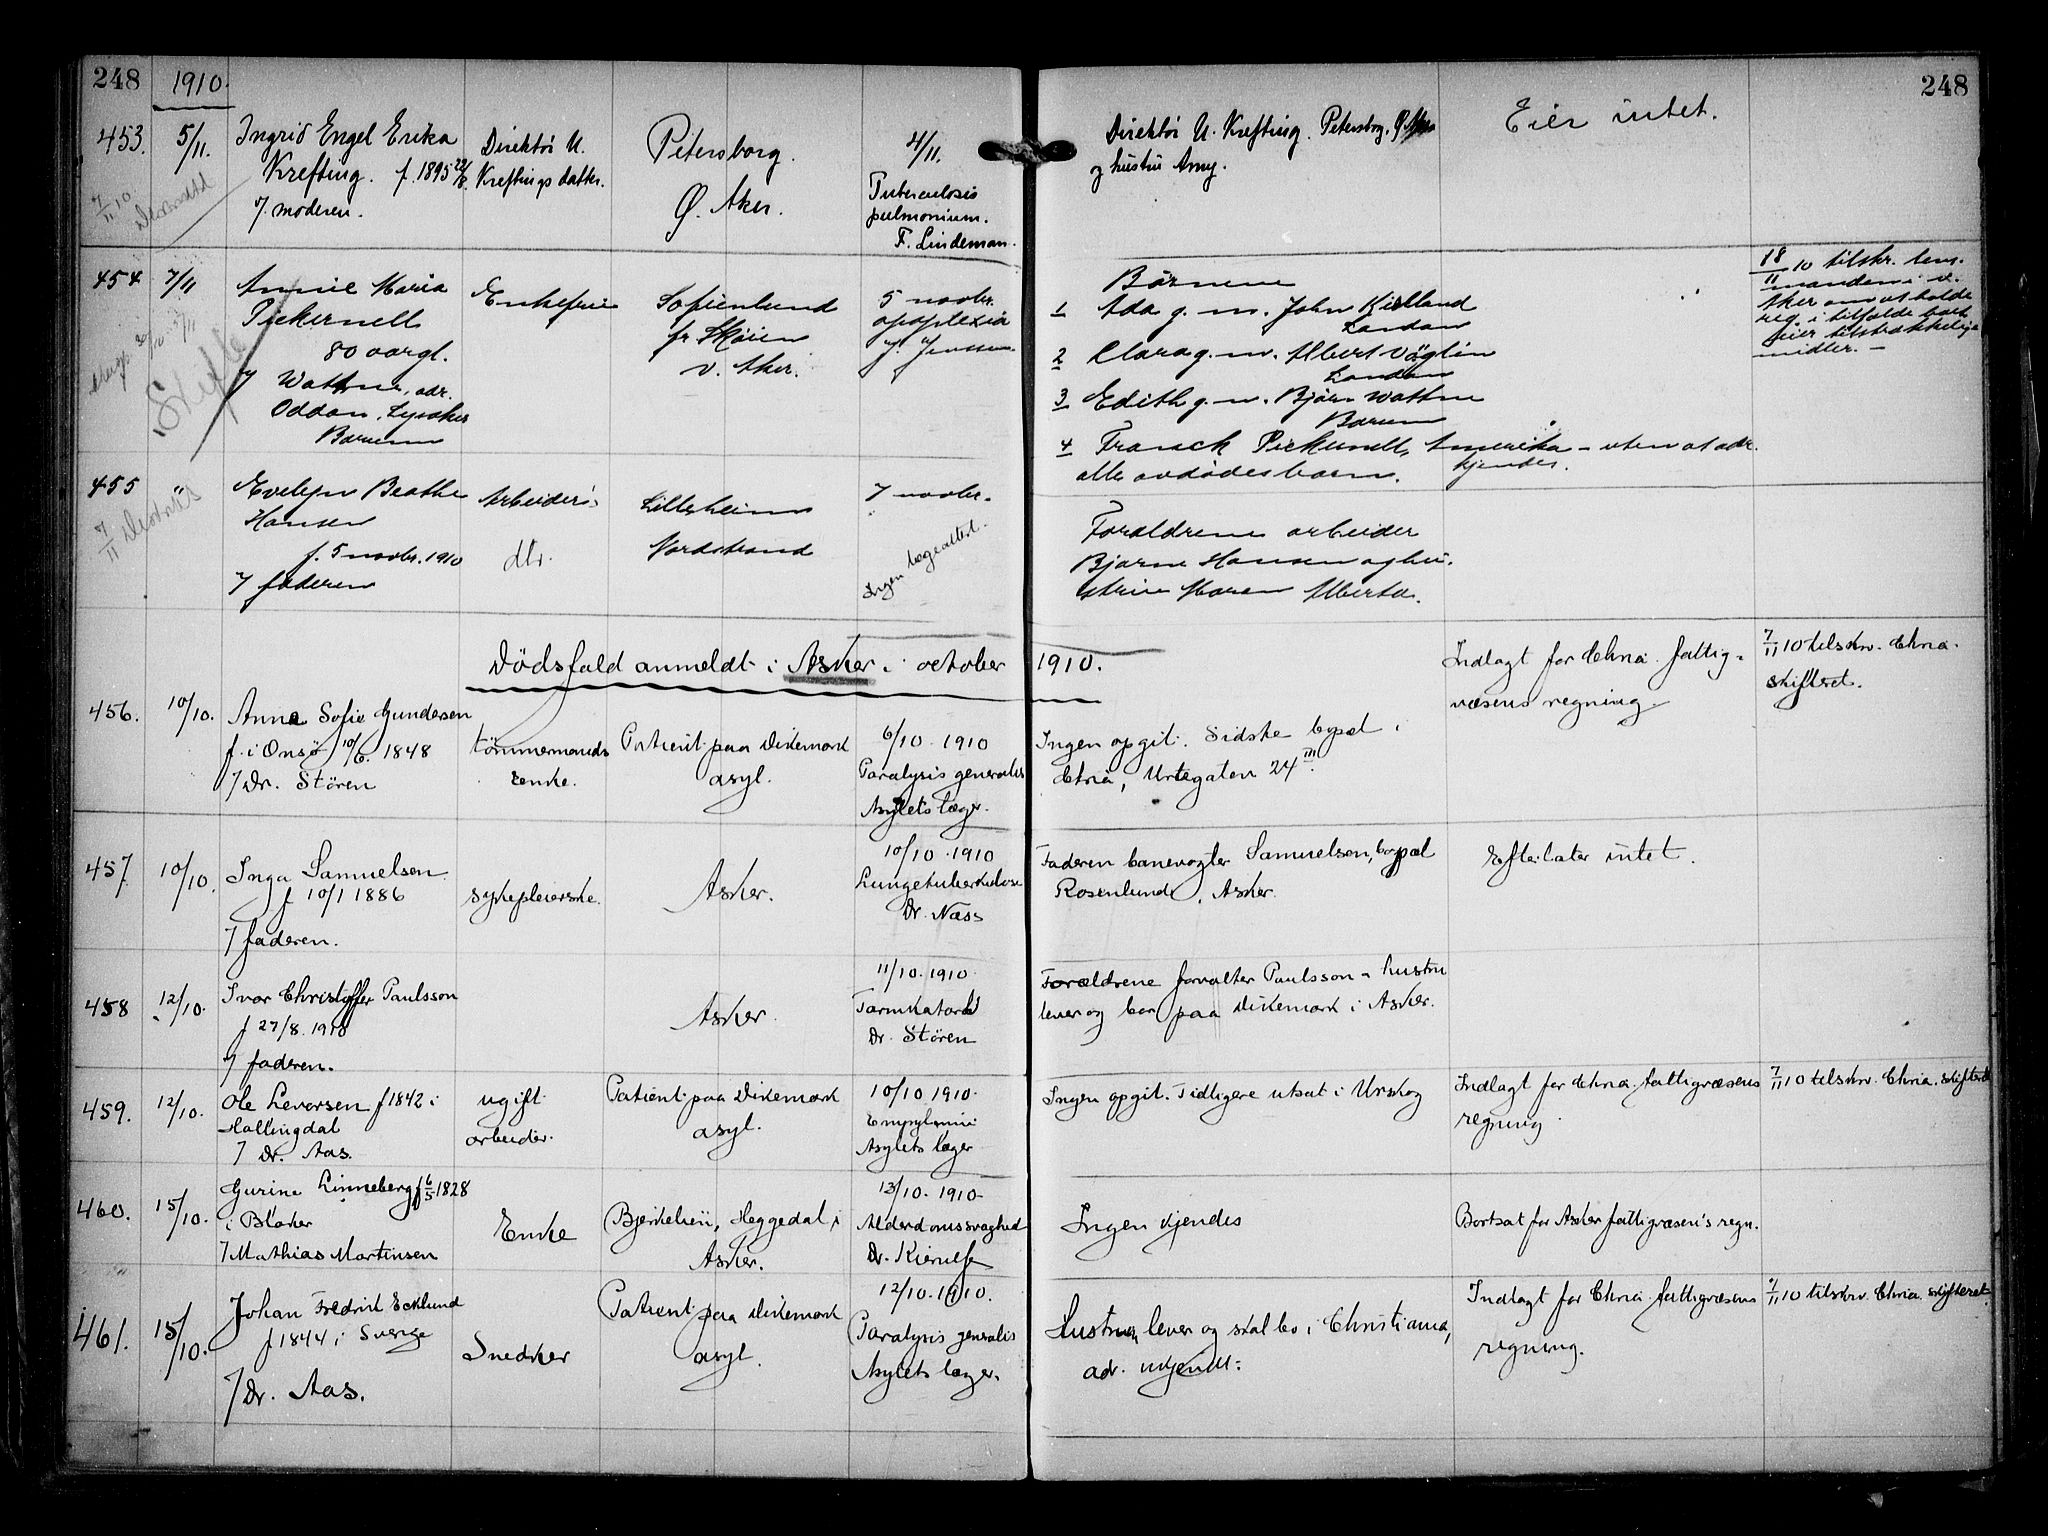 248 1910. 248
453. 5/11. Ingrid Engel Erika
Krefting. f. 1895 22/8
7/11 10
7. moderen.
Direktör U.
Kreftings datter.
Petersborg.
Ø. Aker.
4/11.
Tuberculosis
pulmonium.
F. Lindeman.
Direktör U. Krefting. Petersborg, Ø. Aker
og hustru Amy.
Eier intet.
454 7/11 Annie Maria
Pickernell
80 aar gl.
7 Wattne, adr.
Oddan, Lysaker
Bærum
Skifte
Enkefrue
Sofienlund
pr Skøien
v. Aker.
5 novbr.
apoplexia
J. Jenssen
Börnene
1 Ada g. m. John Kielland
London
2 Clara g. m. Albert Vöglin
London
3 Edith g. m. Björn Wattne
Bærum
4 Franck Pickernell, Amerika - uten at adr.
kjendes.
alle avdödes barn.
18/11 10 tilskr. lens-
manden i v.
Aker om at holde
reg. i tilfælde boet
eier tilstrækkelige
midler. -
455 " Evelyn Beathe
Hansen
f. 5 novbr. 1910
7 faderen
7/11
Arbeider-
dtr.
Lilleheim
Nordstrand
7 novbr.
Ingen lægeattest.
Forældrene arbeider
Bjarne Hansen og hu-
stru Maren Alberta.
Dödsfald anmeldt i Asker i october 1910.
456. 10/10. Anna Sofie Gundersen
f. i Onsö 10/6. 1848
7 Dr. Stören
tömmermands
enke.
Patient paa Dikemark
asyl.
6/10 1910
Paralysis generalis
Asylets læger.
Ingen opgit. Sidste bopæl i
Chria, Urtegaten 24 III.
Indlagt for Chria fattig-
væsens regning.
7/11 10 tilskrv. Chria.
skifteret.
457 10/10. Inga Samuelsen
f 10/1 1886
7 faderen.
sykepleierske.
Asker.
10/10 1910
Lungetuberkulose
Dr. Næss
Faderen banevogter Samuelsen, bopæl
Rosenlund, Asker.
Efterlater intet.
458 12/10. Ivar Christoffer Paulsson
f 27/8. 1910
7 faderen.
Asker.
11/10. 1910
Tarmkatarrh
Dr. Stören
Forældrene forvalter Paulsson - hustru
lever og bor paa Dikemark i Asker.
459. 12/10. Ole Levorsen f 1842 i
Hallingdal
7 Dr. Aas.
ugift
arbeider.
Patient paa Dikemark
asyl.
10/10 1910.
Asylets læger
Ingen opgit. Tidligere utsat i Urskog
Indlagt for Chria fattigvæsens
regning
7/11 10 tilskrv. Chria. skifteret
460. 15/10. Gurine Linneberg f 6/5 1828
i Blaker
7 Mathias Martinsen
Enke
Bjerkelien, Heggedal i
Asker.
13/10. 1910
Alderdomssvaghed
Dr. Kierulf
Ingen kjendes
Bortsat for Asker fattigvæsen's regn.
461. 15/10. Johan Fredrik Ecklund
f 1844 i Sverige
7 Dr. Aas.
Snedker
Patient paa Dikemark
asyl.
12/10. 1910.
Paralysis generalis
Asylets læger.
Hustruen lever og skal bo i Christiania,
adr. ukjendt.
Indlagt for Chria fattigvæsens
regning.
7/11 10 tilskrv. Chria. skifteret.